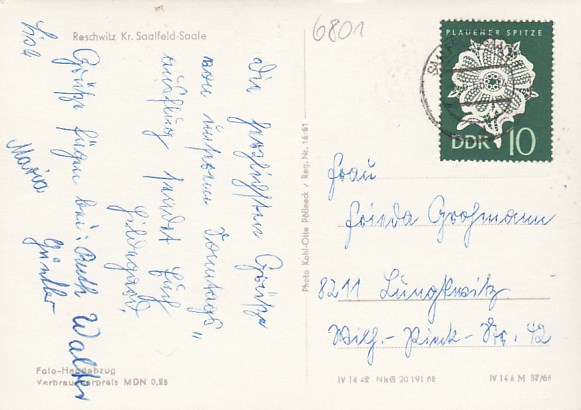 Reschwitz Kr. Saalfeld-Saale
6801
PLAUENER SPITZE
DDR 10
Die herzlichsten Grüße
von unserem Sonntags"
ausflug sendet Euch
Hildegard.
Grüße fügen bei: Ruth Walter
Maria Günther
Frau
Frieda Großmann
8211 Lungkwitz
Wilh.-Pieck-Str. 42
Photo Kohl-Otte Pößneck / Reg. Nr. 16/61
Foto-Handabzug
Verbraucherpreis MDN 0,25
IV 14 42 NkG 20 191 68
IV 14 6 M 37/66